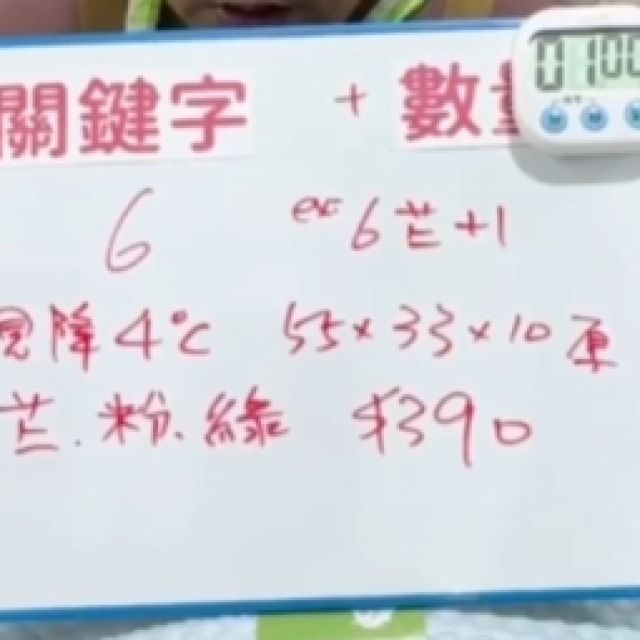 關鍵字 + 數
01 00
6 ex: 6芒+1
降4°C 55x33x10
芒.粉.綠 $390